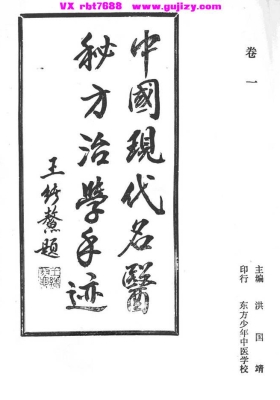 VX rbt7688 www.gujizy.com
卷一
中國現代名醫
秘方治學手迹
王竹鰲題
主编 洪国靖
印行 东方少年中医学校